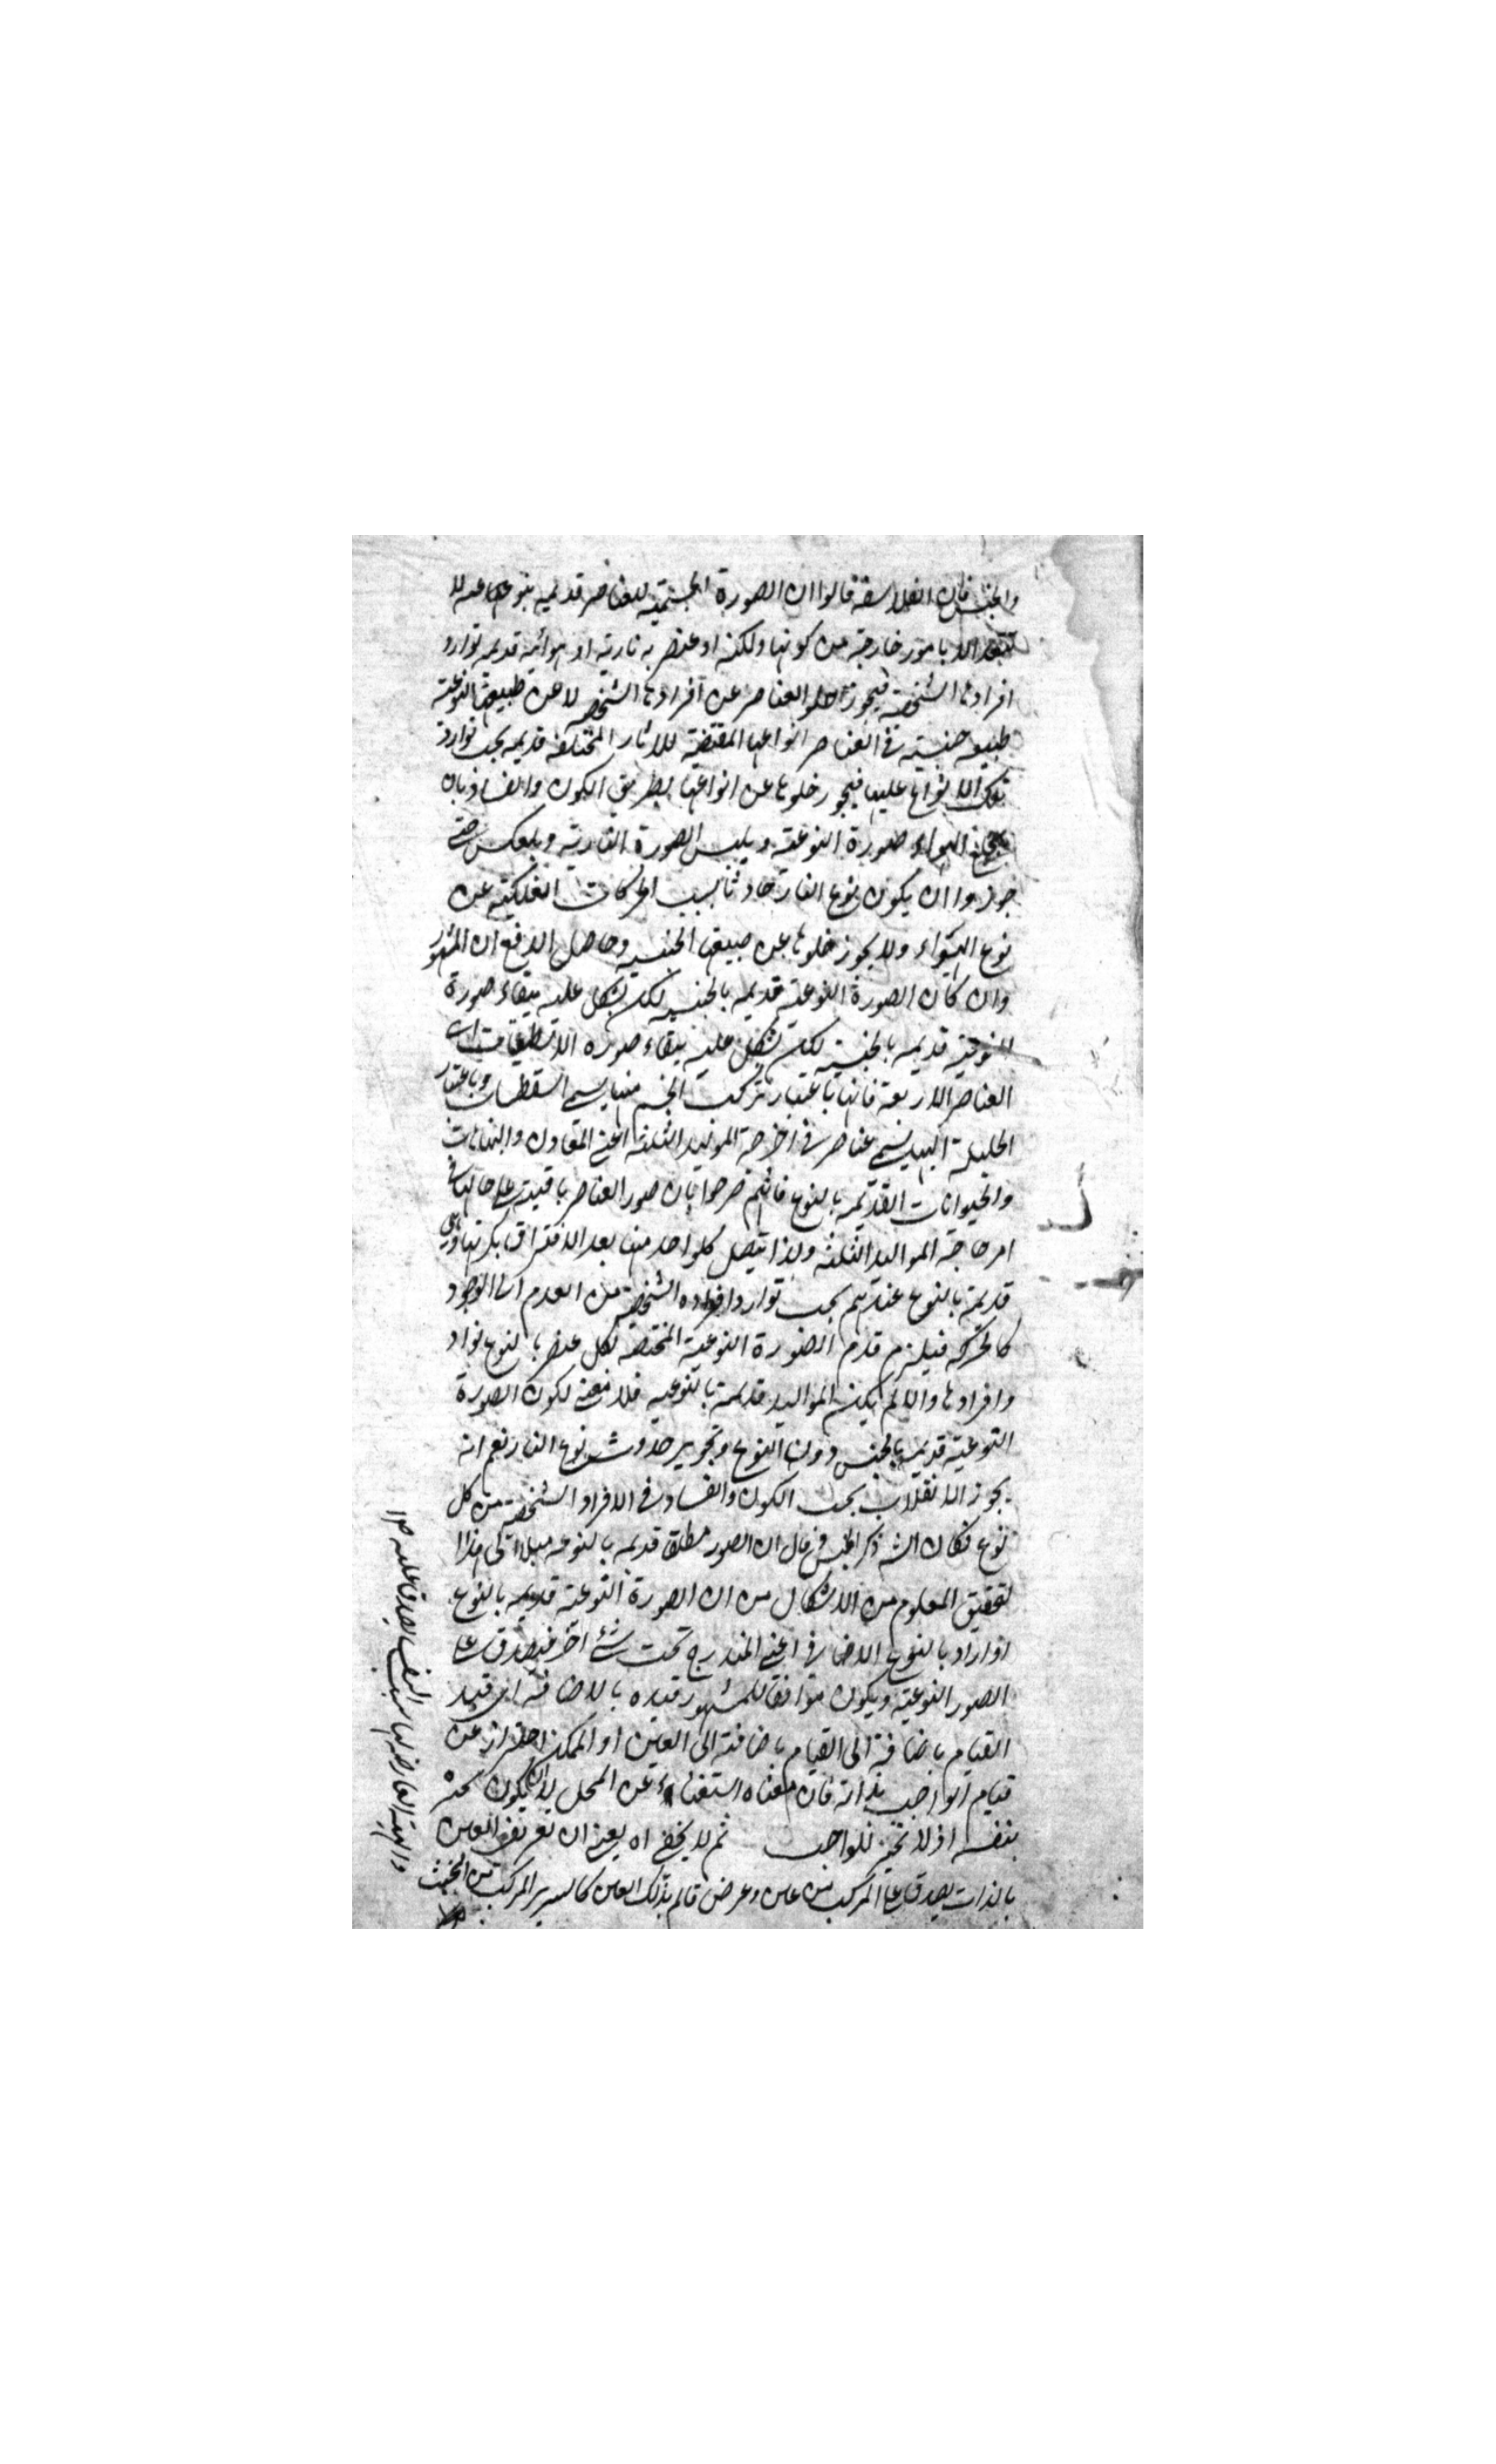 والجنس فان الفلاسفة قالوا ان الصورة الجسمية للعناصر قديمة بنوعها
الا بامور خارجة من كونها ولكنه او عنصرية نارية او هوائية قديمة توارد
افرادها الشخصية فيجوز خلو العناصر عن افرادها الشخصية لا عن طبيعتها النوعية
طبيعة جنسية في العناصر انواعها المقتضية للاثار المختلفة قديمة بحسب توارد
تلك الانواع عليها فيجوز خلوها عن انواعها بطريق الكون والفساد بان
يخلع الهواء صورة النوعية ويلبس الصورة النارية وبالعكس حتى
جوزوا ان يكون نوع النار حادثا بسبب الحركات الفلكية عن
نوع الهواء ولا يجوز خلوها عن طبيعتها الجنسية وحاصل الدفع ان المشهور
وان كان الصورة النوعية قديمة بالجنسية لكن يشكل عليه ببقاء صورة
النوعية قديمة بالجنسية لكن يشكل عليه ببقاء صورة الاسطقسات اي
العناصر الاربعة فانها باعتبار تركب الجسم منها يسمى اسطقسات وباعتبار
تحليله اليها يسمى عناصر في امزجة المواليد الثلثة اعني المعادن والنباتات
والحيوانات القديمة بالنوع فانهم صرحوا بان صور العناصر باقية على حالها في
امزجة المواليد الثلثة ولذا يتصل كل واحد منها بعد الافتراق بكرتها وهي
قديمة بالنوع عندهم بحسب توارد افراده الشخصية من العدم الى الوجود
كالحركة فيلزم قدم الصورة النوعية المختصة لكل عنصر بالنوع توارد
وافرادها والا لم يكن المواليد قديمة بالنوعية فلا معنى لكون الصورة
النوعية قديمة بالجنس دون النوع وتجويز حدوث نوع النار نعم انه
يجوز الانقلاب بحسب الكون والفساد في الافراد الشخصية من كل
نوع فكان الش ذكر الجنس فقال ان الصور مطلقا قديمة بالنوع ميلا الى هذا
لتحقيق المعلوم من الاشكال من ان الصورة النوعية قديمة بالنوع
او اراد بالنوع الاضافي اعني المندرج تحت شئ اخر فيصدق على
الصور النوعية ويكون موافقا للمشهور قيده بالاضافة اى قيد
القيام باضافة الى القيام باضافته الى العين او الممكن احتراز عن
قيام الواجب بذاته فان معناه استغناءه عن المحل لا ان يكون تحيزه
بنفسه اذ لا تحيز للواجب ثم لا يخفى اه يعني ان تعريف العين
بالذات يصدق على المركب من عين وعرض قائم بذلك العين كالسرير المركب من الخشب
والهيئة العارضة لها